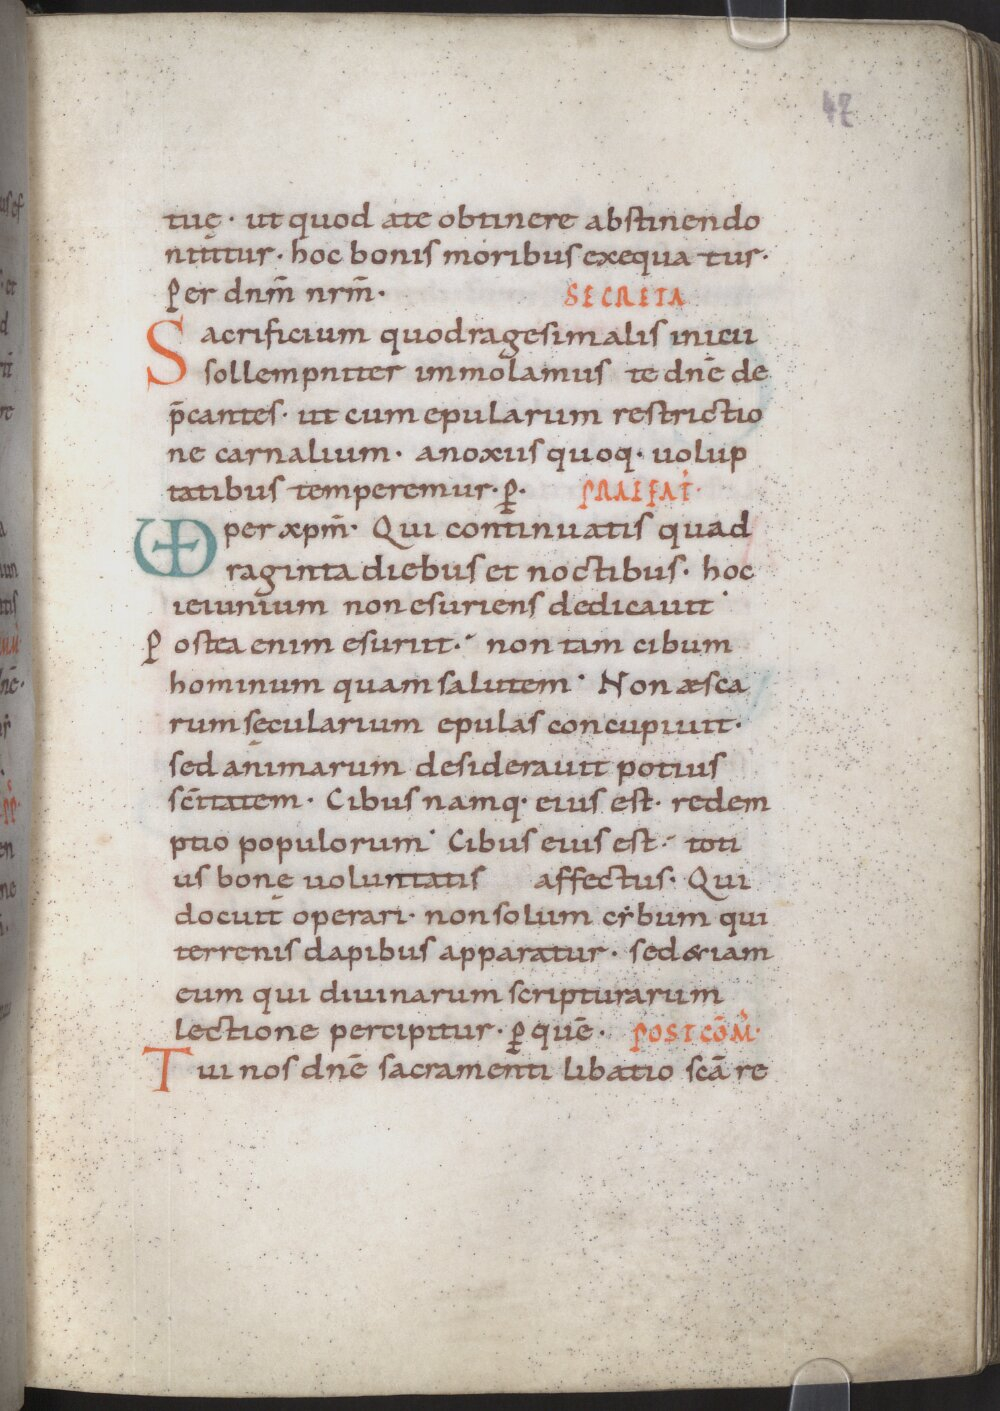 47
tuę · ut quod ate obtinere abstinendo
nititur · hoc bonis moribus exequa tur ·
Per dnm̄ nrm̄ · SECRETA
Sacrificium quodragesimalis inicii
sollempniter immolamus te dnē de
p̄cantes · ut cum epularum restrictio
ne carnalium · anoxiis quoq · uolup
tatibus temperemur · ꝑ · PRAEFAT ·
VD per xpm̄ · Qui continuatis quad
raginta diebus et noctibus · hoc
ieiunium non esuriens dedicauit ·
Postea enim esuriit · non tam cibum
hominum quam salutem · Non æsca
rum sęcularium epulas concupiuit ·
sed animarum desiderauit potius
sc̄itatem · Cibus namq · eius est · redem
ptio populorum · Cibus eius est · toti
us bonę uoluntatis affectus · Qui
docuit operari · non solum cybum qui
terrenis dapibus apparatur · sed &iam
eum qui diuinarum scripturarum
lectione percipitur · ꝑ quē · POSTCOM̄ ·
Tui nos dnē sacramenti libatio scā re